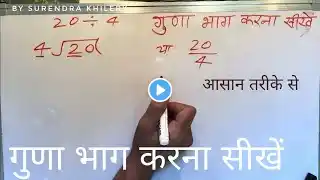 BY SURENDRA KHILERY
20 ÷ 4 गुणा भाग करना सीखें
4√20( या 20/4
आसान तरीके से
गुणा भाग करना सीखें